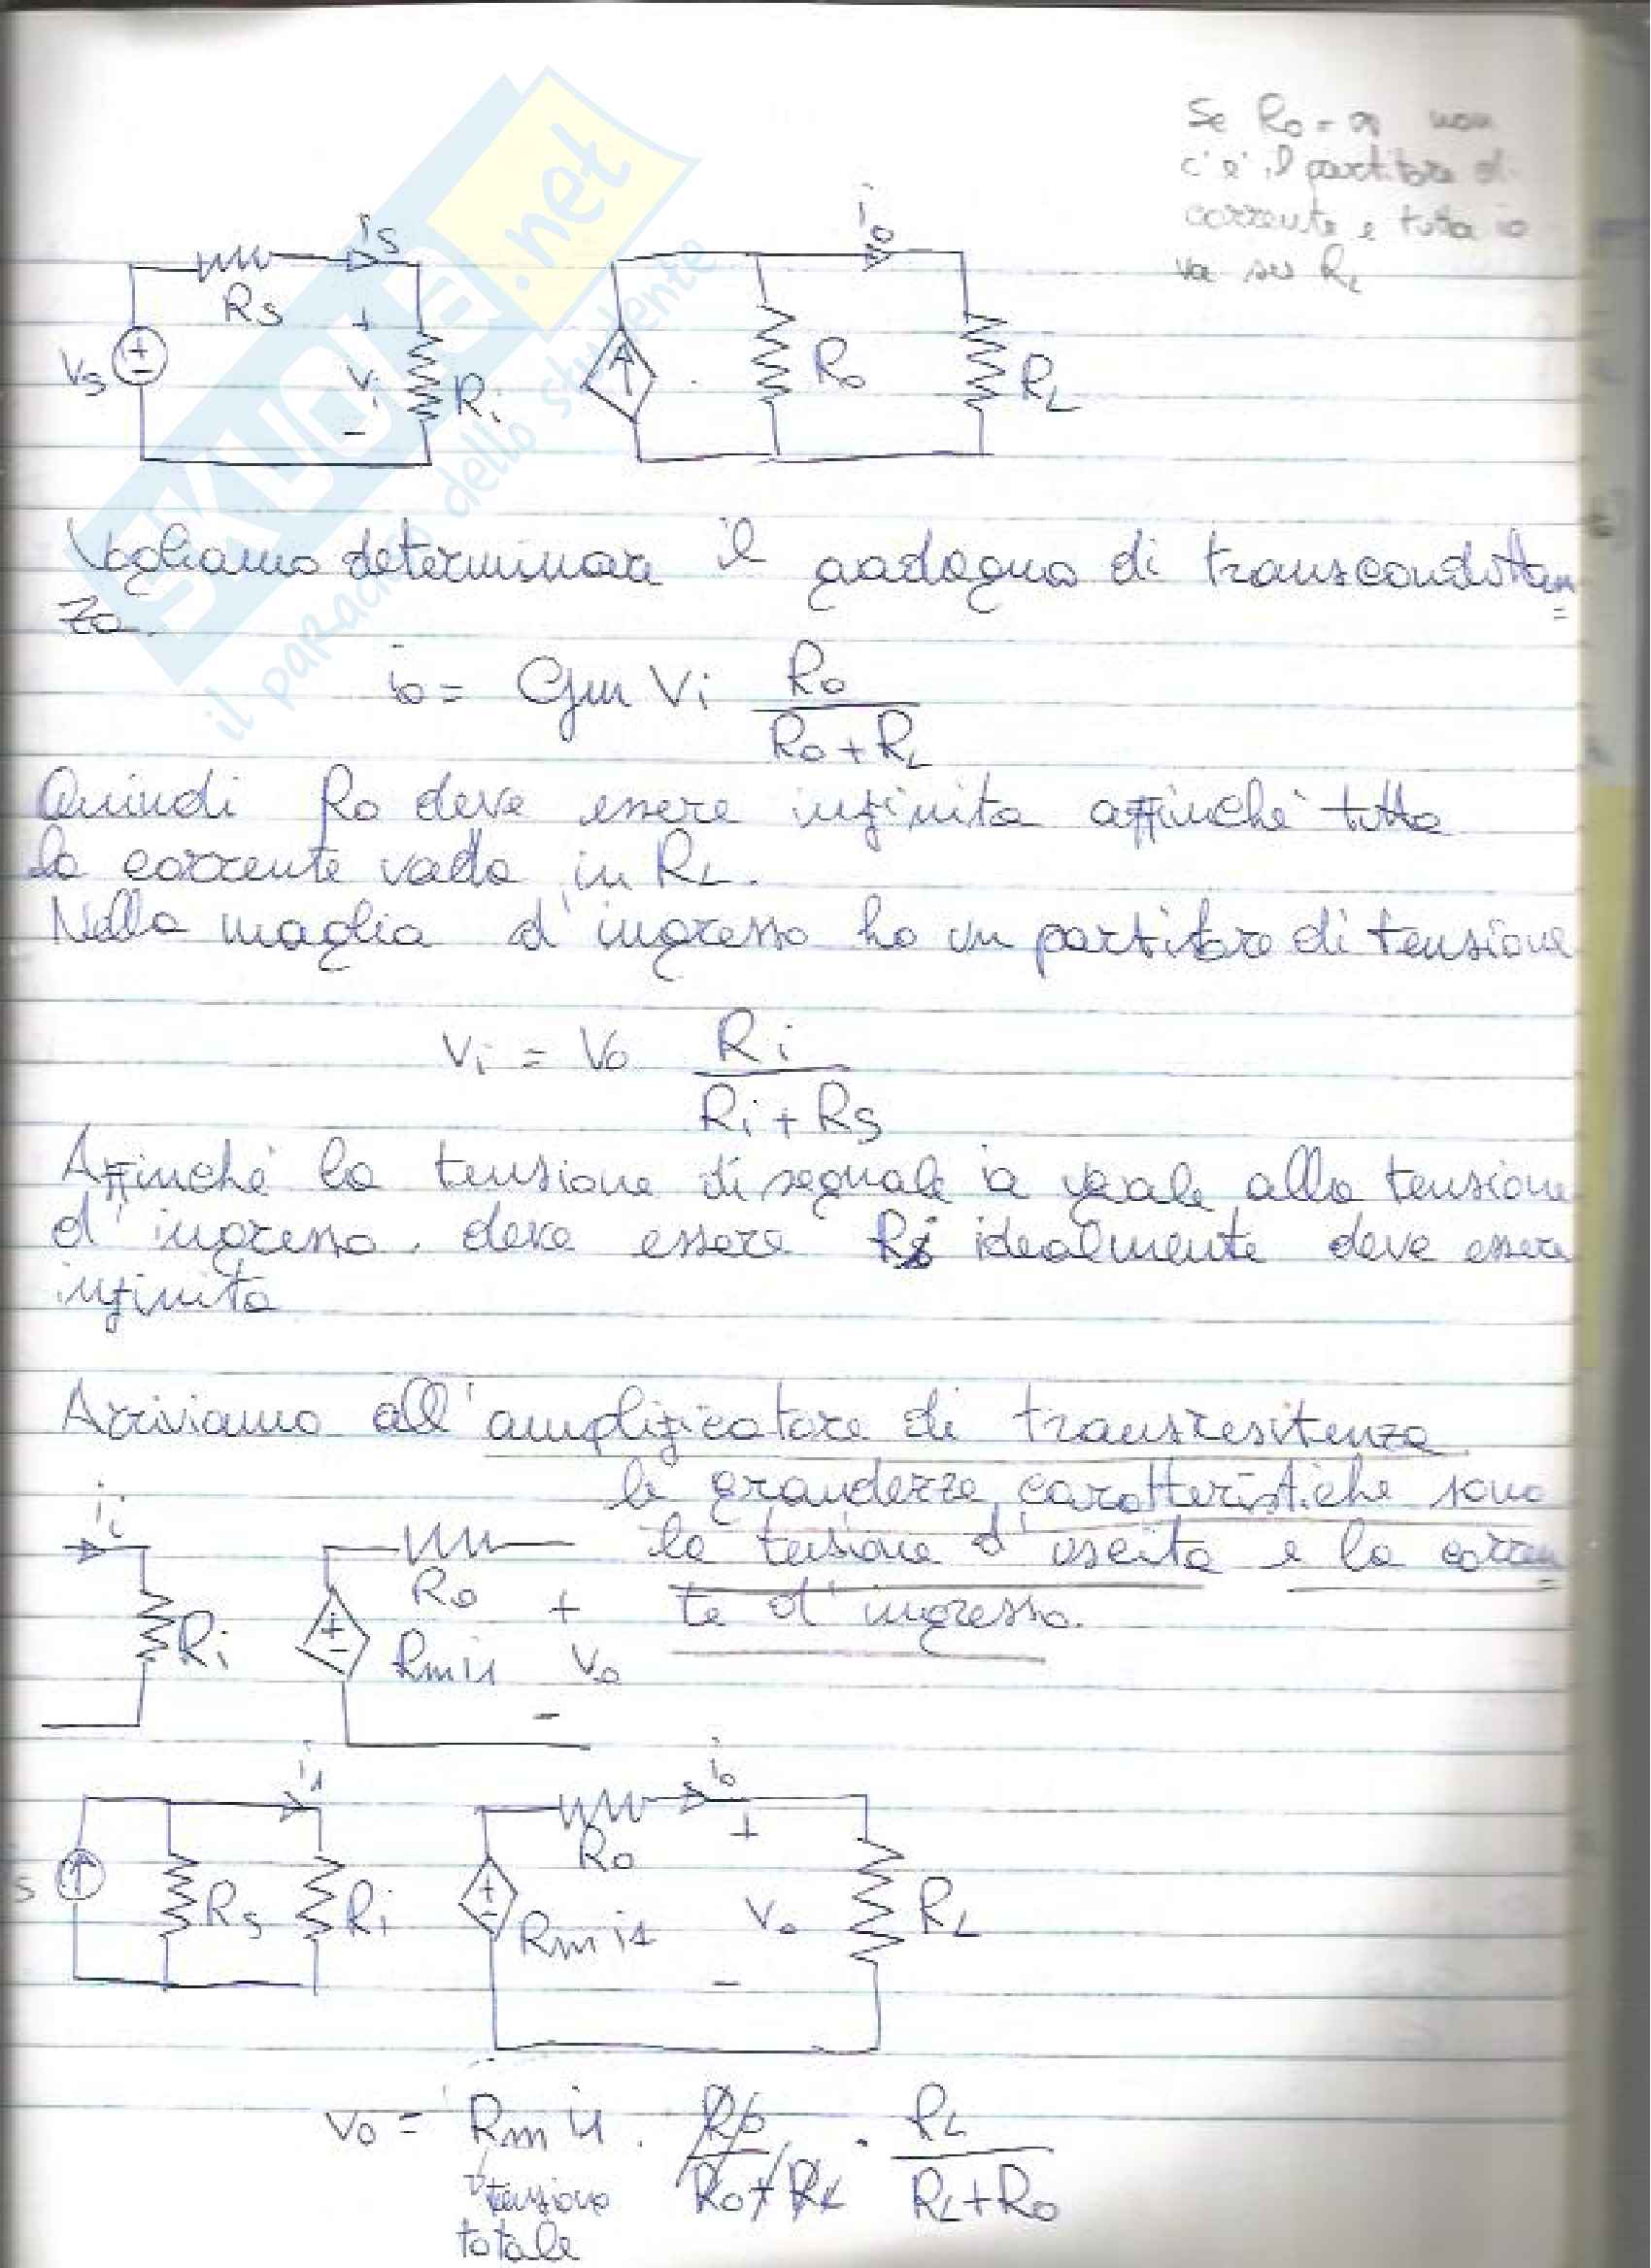 Se Ro = ∞ non
c'è il partitore di
corrente e tutta io
va su RL
is
Rs
Vs
+
Vi
-
Ri
io
Ro
RL
Vogliamo determinare il gadagno di transcondottan
za.
io = Gm Vi Ro / Ro + RL
Quindi Ro deve essere infinita affinché tutta
la corrente vada in RL.
Nella maglia d'ingresso ho un partitore di tensione
Vi = Vo Ri / Ri + Rs
Affinché la tensione di segnale uguale alla tensione
d'ingresso. deve essere Ri idealmente deve essere
infinita
Arriviamo all'amplificatore di transresitenza
le grandezze caratteristiche sono
la tensione d'uscita e la corren
te d'ingresso.
ii
Ri
Ro
+
Rm i1
Vo
-
i1
s
Rs
Ri
io
Ro
+
Rm i1
Vo
-
RL
Vo = Rm i1 . Ro / Ro + RL . RL / RL + Ro
tensione
totale
SKUOLA.net
il paradiso dello studente